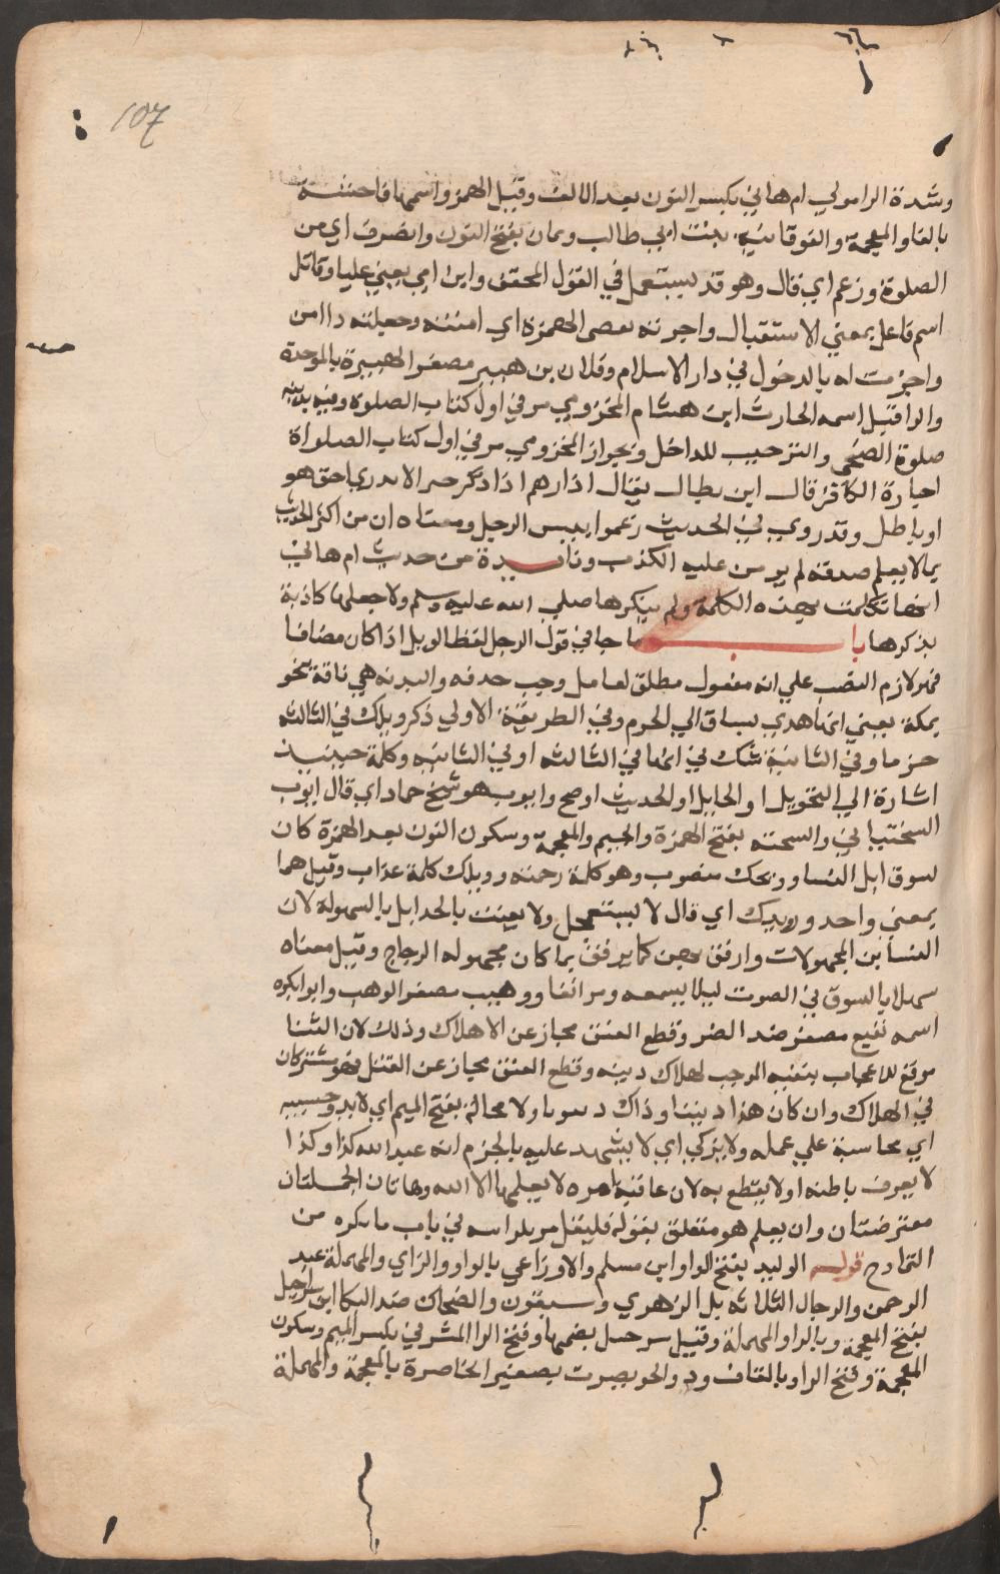 107
وشدة الرا مولي ام هاني بكسر النون بعد الالف وقبل الهمز واسمها فاختة
بالفا والمعجمة والفوقانية بنت ابي طالب وثمان بفتح النون وانصرف اي من
الصلوة وزعم اي قال وهو قد يستعمل في القول المحقق وابن امي يعني عليا وقاتل
اسم فاعل بمعني الاستقبال واجرته بقصر الهمزة اي امنته وجعلته ذا امن
واجزت له بالدخول في دار الاسلام وفلان بن هبير مصغر الهبيرة بالموحدة
والرا قيل اسمه الحارث ابن هشام المخزومي مر في اول كتاب الصلوة وفيه
صلوة الضحي والترحيب للداخل وبجواز المخزومي مر في اول كتاب الصلواة
اجارة الكافر قال ابن بطال يقال اذا رهم اذا ذكر خبر الا يدري احق هو
او باطل وقد روي في الحديث زعموا بيس الرجل ومعناه ان من اكثر الحديث
بما لا يعلم صدقه لم يومن عليه الكذب وفائدة من حديث ام هاني
انها تكلمت بهذه الكلمة ولم ينكرها صلي الله عليه وسلم ولا جعلها كاذبة
بذكرها باب ما جا في قول الرجل لفظ الويل اذا كان مضافا
فهو لازم النصب علي انه مفعول مطلق لعامل وجب حذفه والبدنه هي ناقة تنحر
بمكة يعني انها هدي يساق الي الحرم وفي الطريقة الاولي ذكر ويلك في الثالثه
جزما وفي الثانية شك في انها في الثالثه او في الثانيه وكلمة حينيذ
اشارة الي التحويل او الحايل او الحديث او صح وايوب هو شيخ حماد اي قال ايوب
السختياني والسحته بفتح الهمزة والجيم والمعجمة وسكون النون بعد الهمزة كان
يسوق ابل النسا وويحك منصوب وهو كلمة رحمة وويلك كلمة عذاب وقيل هما
بمعني واحد ورويدك اي قال لا يستعجل ولا يعنت بالحد ابل بالسهولة لان
النسا بن المحمولات وارفق بهن كما يرفق بما كان محموله الزجاج وقيل معناه
سهلا بالسوق في الصوت ليلا يسمعه ومر انفا ووهيب مصغر الوهب وابو بكره
اسمه نفيع مصغر ضد الضر وقطع العنق مجاز عن الاهلاك وذلك لان الثنا
موقع للاعجاب بنفسه الموجب لهلاك دينه وقطع العنق مجاز عن القتل فهو مشتركان
في الهلاك وان كان هذا دينيا وذاك دنيويا ولا محالة بفتح الميم اي لابد وحسيبه
اي محاسبة علي عمله ولا يزكي اي لا يشهد عليه بالجزم انه عند الله كذا وكذا
لا يعرف باطنه او لا يقطع به لان عاقبة امره لا يعلمها الا الله وهاتان الجملتان
معترضتان وان يعلم هو متعلق بقوله فليقل في باب ما يكره من
التمادح قوله الوليد بفتح الواو ابن مسلم والاوزاعي بالواو والزاي والمهملة عبد
الرحمن والرجال الثلاثه بل الزهري وسبقون والضحاك ضد البكا ابن شرحبيل
بفتح المعجمة وبالراو المهملة وقيل شرحبيل بضمها وفتح الرا المشرفي بكسر الميم وسكون
المعجمة وفتح الرا وبالقاف وذو الخويصرت بصغير الخاصرة بالمعجمة والمهملة